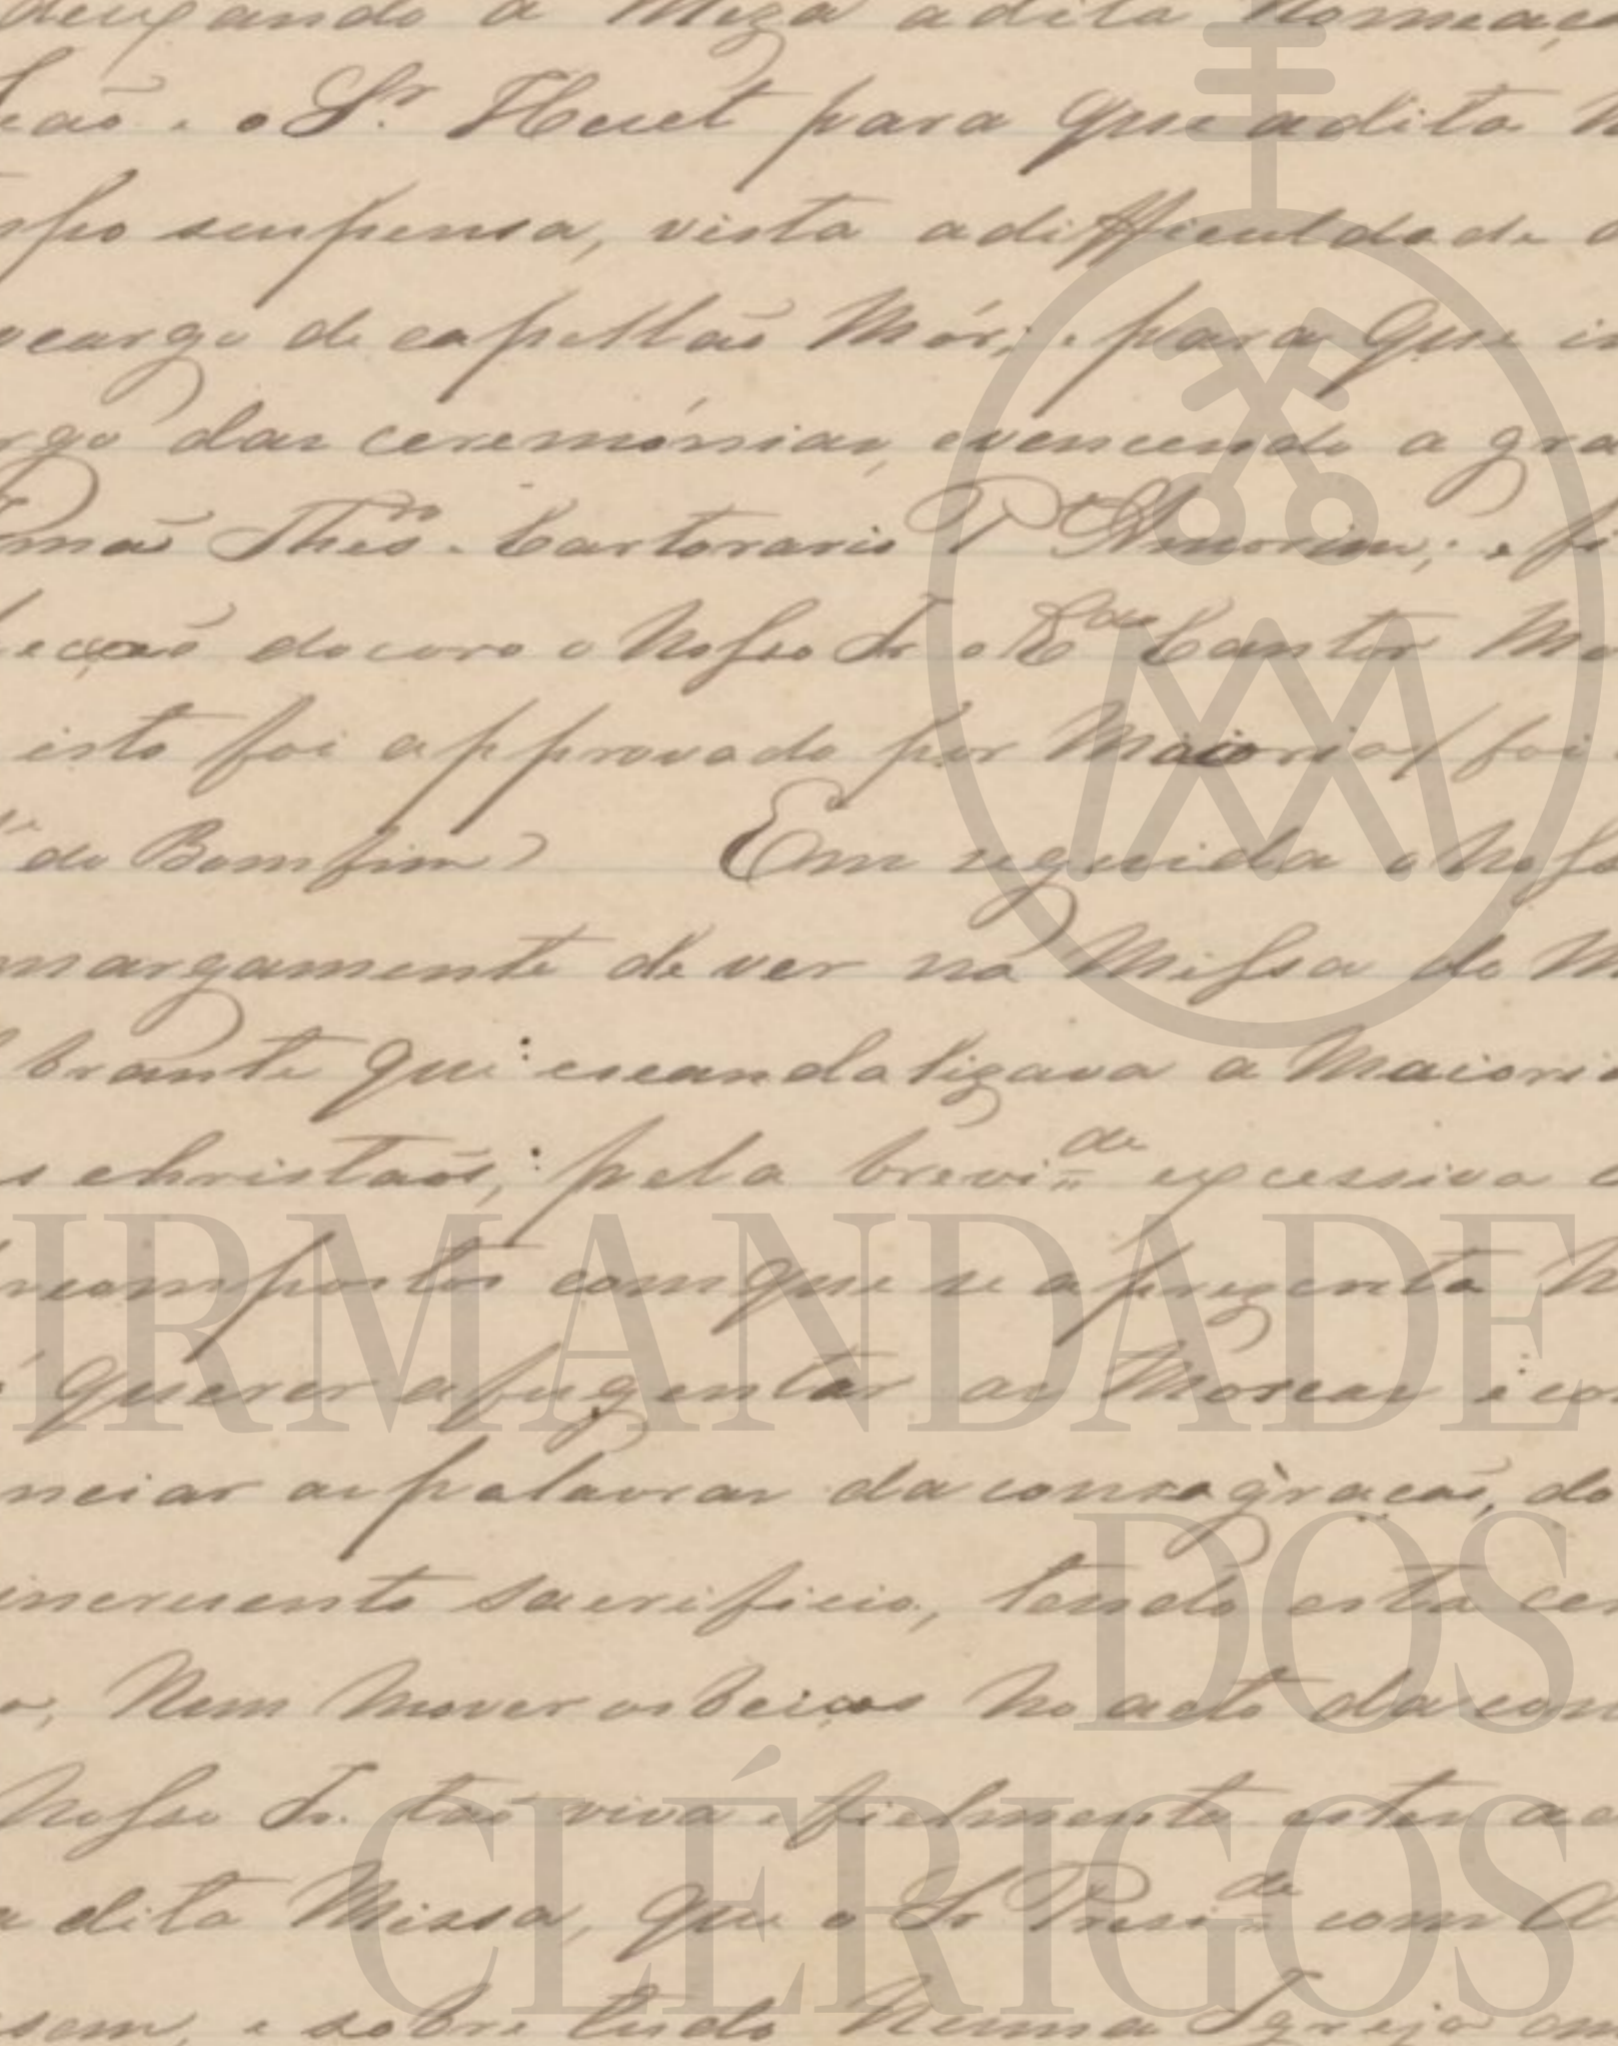 ando a Meza a dita Nomeaça
. o Sr. Huet para que a dita N
suspensa, vista a difficuldade d
cargo de capellão Mór; e para que in
rgo das ceremónias, e vencendo a gra
rmão Thesro. Cartorario Pe Amorim; e fi
do coro o Nosso Ir. o Rdo Cantor Mo
isto foi approvado por Maioria / foi
do Bomfim) Em seguida o Nosso
margamente de ver na Missa do M
brante que escandalizava a Maioria
s christaõs, pela brevide excessiva e
compostos com que se aprezenta N
querer afugentar as Moscas e com
nciar as palavras da consagração, do
incruento sacrificio, tendo esta ce
o, Nem mover os beiços No acto da con
Nosso Ir. taõ viva e fielmente estes ac
a dita Missa, que o Ir. Preside com
sem, e sobre tudo Numa Igreja
IRMANDADE
DOS
CLÉRIGOS